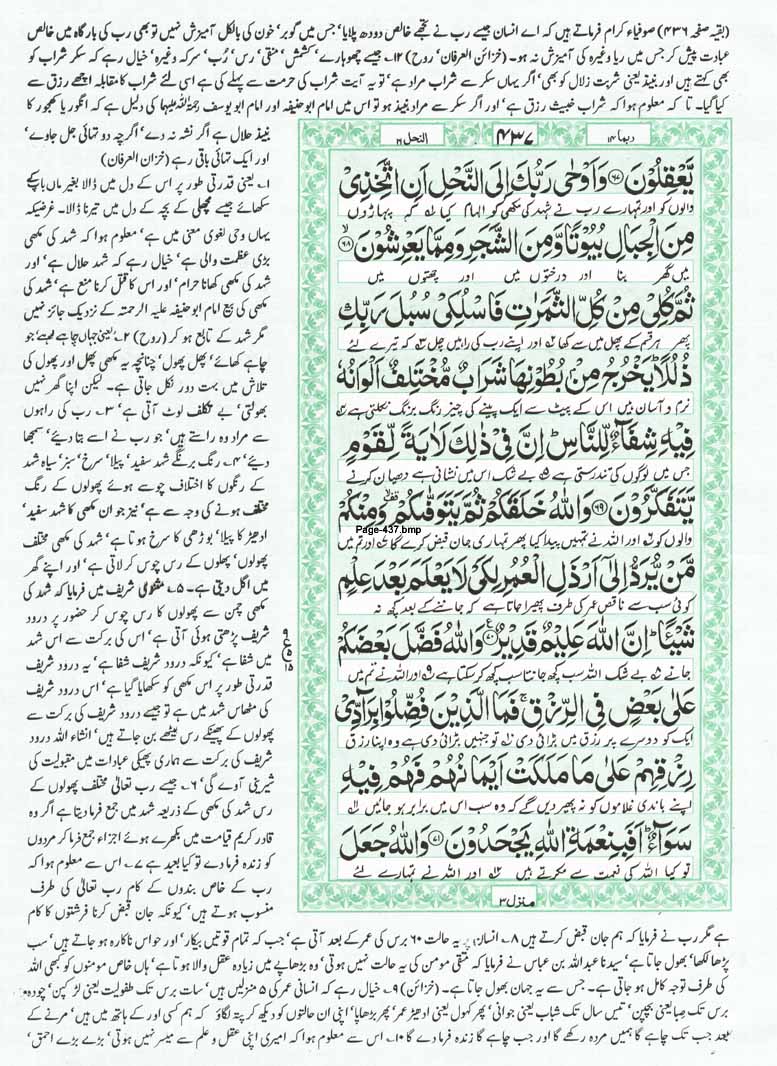 (بقیہ صفحہ ۴۳۶) صوفیاء کرام فرماتے ہیں کہ اے انسان جیسے رب نے تجھے خالص دودھ پلایا، جس میں گوبر، خون کی بالکل آمیزش نہیں تو بھی رب کی بارگاہ میں خالص
عبادت پیش کر جس میں ریا وغیرہ کی آمیزش نہ ہو۔ (خزائن العرفان، روح) ۱۲۔ جیسے چھوہارے، کشمش، منقی، رس، رُب، سرکہ وغیرہ، خیال رہے کہ سکر شراب کو
بھی کہتے ہیں اور نبیذ یعنی شربت زلال کو بھی، اگر یہاں سکر سے شراب مراد ہے، تو یہ آیت شراب کی حرمت سے پہلے کی ہے اسی لئے شراب کا مقابلہ اچھے رزق سے
کیا گیا۔ تا کہ معلوم ہوا کہ شراب خبیث رزق ہے، اور اگر سکر سے مراد نبیذ ہو تو اس میں امام ابو حنیفہ اور امام ابو یوسف رحمۃ اللہ علیہما کی دلیل ہے کہ انگور یا کھجور کا
نبیذ حلال ہے اگر نشہ نہ دے، اگرچہ دو تہائی جل جاوے،
اور ایک تہائی باقی رہے (خزان العرفان)
۱۔ یعنی قدرتی طور پر اس کے دل میں ڈالا بغیر ماں باپ کے
سکھائے جیسے مچھلی کے بچہ کے دل میں تیرنا ڈالا۔ غرضیکہ
یہاں وحی لغوی معنی میں ہے، معلوم ہوا کہ شہد کی مکھی
بڑی عظمت والی ہے، خیال رہے کہ شہد حلال ہے، اور
شہد کی مکھی کھانا حرام، اور اس کا قتل کرنا منع ہے، شہد کی
مکھی کی بیع امام ابو حنیفہ علیہ الرحمتہ کے نزدیک جائز نہیں
مگر شہد کے تابع ہو کر (روح) ۲۔ یعنی جہاں چاہے بیٹھے جو
چاہے کھائے، پھل پھول، چنانچہ یہ مکھی پھل اور پھول کی
تلاش میں بہت دور نکل جاتی ہے۔ لیکن اپنا گھر نہیں
بھولتی، بے تکلف لوٹ آتی ہے، ۳۔ رب کی راہوں
سے مراد وہ راستے ہیں، جو رب نے اسے بتا دیئے، سمجھا
دیئے، ۴۔ رنگ برنگے شہد سفید، پیلا، سرخ، سبز، سیاہ شہد
کے رنگوں کا اختلاف چوسے ہوئے پھولوں کے رنگ
مختلف ہونے کی وجہ سے ہے، نیز جوان مکھی کا شہد سفید،
ادھیڑ کا پیلا، بوڑھی کا سرخ ہوتا ہے، شہد کی مکھی مختلف
پھولوں، پھلوں کے رس چوس کر لاتی ہے، اور اپنے گھر
میں اگل دیتی ہے۔ ۵۔ مثنوی شریف میں فرمایا کہ شہد کی
مکھی چمن سے پھولوں کا رس چوس کر حضور پر درود
شریف پڑھتی ہوئی آتی ہے، اس کی برکت سے اس شہد
میں شفا ہے، کیونکہ درود شریف شفا ہے، یہ درود شریف
قدرتی طور پر اس مکھی کو سکھایا گیا ہے، اس درود شریف
کی مٹھاس شہد میں ہے تو جیسے درود شریف کی برکت سے
پھولوں کے پھیکے رس میٹھے بن جاتے ہیں، انشاء اللہ درود
شریف کی برکت سے ہماری پھیکی عبادات میں مقبولیت کی
شیرینی آوے گی، ۶۔ جیسے رب تعالٰی مختلف پھولوں کے
رس شہد کی مکھی کے ذریعہ شہد میں جمع فرما دیتا ہے اگر وہ
قادر کریم قیامت میں بکھرے ہوئے اجزاء جمع فرما کر مردوں
کو زندہ فرما دے تو کیا بعید ہے، ۷۔ اس سے معلوم ہوا کہ
رب کے خاص بندوں کے کام رب تعالٰی کی طرف
منسوب ہوتے ہیں، کیونکہ جان قبض کرنا فرشتوں کا کام
ربما ۱۴
۴۳۷
النحل ۱۶
يَّعْقِلُوْنَ ﴿۶۷﴾ وَاَوْحٰى رَبُّكَ اِلَى النَّحْلِ اَنِ اتَّخِذِىْ
والوں کو اور تمہارے رب نے شہد کی مکھی کو الہام کیا کہ پہاڑوں
مِنَ الْجِبَالِ بُيُوْتًا وَّمِنَ الشَّجَرِ وَمِمَّا يَعْرِشُوْنَ ﴿۶۸﴾
میں گھر بنا اور درختوں میں اور چھتوں میں
ثُمَّ كُلِىْ مِنْ كُلِّ الثَّمَرٰتِ فَاسْلُكِىْ سُبُلَ رَبِّكِ
پھر ہر قسم کے پھل میں سے کھا اور اپنے رب کی راہیں چل کہ تیرے لئے
ذُلُلًا ؕ يَخْرُجُ مِنْۢ بُطُوْنِهَا شَرَابٌ مُّخْتَلِفٌ اَلْوَانُهٗ
نرم و آسان ہیں اس کے پیٹ سے ایک پینے کی چیز رنگ برنگ نکلتی ہے
فِيْهِ شِفَآءٌ لِّلنَّاسِ ؕ اِنَّ فِىْ ذٰلِكَ لَاٰيَةً لِّقَوْمٍ
جس میں لوگوں کی تندرستی ہے بے شک اس میں نشانی ہے دھیان کرنے
يَّتَفَكَّرُوْنَ ﴿۶۹﴾ وَاللّٰهُ خَلَقَكُمْ ثُمَّ يَتَوَفّٰٮكُمْ ۙ وَمِنْكُمْ
Page-437.bmp
والوں کو اور اللہ نے تمہیں پیدا کیا پھر تمہاری جان قبض کرے گا اور تم میں
مَّنْ يُّرَدُّ اِلٰٓى اَرْذَلِ الْعُمُرِ لِكَىْ لَا يَعْلَمَ بَعْدَ عِلْمٍ
کوئی سب سے ناقص عمر کی طرف پھیرا جاتا ہے کہ جاننے کے بعد کچھ نہ
شَيْـًٔا ؕ اِنَّ اللّٰهَ عَلِيْمٌ قَدِيْرٌ ﴿۷۰﴾ وَاللّٰهُ فَضَّلَ بَعْضَكُمْ
جانے بے شک اللہ سب کچھ جانتا سب کچھ کر سکتا ہے اور اللہ نے تم میں
عَلٰى بَعْضٍ فِى الرِّزْقِ ۚ فَمَا الَّذِيْنَ فُضِّلُوْا بِرَآدِّىْ
ایک کو دوسرے پر رزق میں بڑائی دی تو جنہیں بڑائی دی ہے وہ اپنا رزق
رِزْقِهِمْ عَلٰى مَا مَلَكَتْ اَيْمَانُهُمْ فَهُمْ فِيْهِ
اپنے باندی غلاموں کو نہ پھیر دیں گے کہ وہ سب اس میں برابر ہو جائیں
سَوَآءٌ ؕ اَفَبِنِعْمَةِ اللّٰهِ يَجْحَدُوْنَ ﴿۷۱﴾ وَاللّٰهُ جَعَلَ
تو کیا اللہ کی نعمت سے مکرتے ہیں اور اللہ نے تمہارے لئے
منزل ۳
ہے مگر رب نے فرمایا کہ ہم جان قبض کرتے ہیں ۸۔ انسان پر یہ حالت ۶۰ برس کی عمر کے بعد آتی ہے، جب کہ تمام قوتیں بیکار، اور حواس ناکارہ ہو جاتے ہیں، سب
پڑھا لکھا، بھول جاتا ہے، سیدنا عبداللہ بن عباس نے فرمایا کہ متقی مومن کی یہ حالت نہیں ہوتی، وہ بڑھاپے میں زیادہ عقل والا ہوتا ہے، ہاں خاص مومنوں کو کبھی اللہ
کی طرف توجہ کامل ہو جاتی ہے۔ جس سے یہ جہان بھول جاتا ہے۔ (خزائن) ۹۔ خیال رہے کہ انسانی عمر کی ۵ منزلیں ہیں، سات برس تک طفولیت یعنی لڑکپن، چودہ
برس تک صبا یعنی بچپن، تیس سال تک شباب یعنی جوانی، پھر کہول یعنی ادھیڑ عمر، پھر بڑھاپا، اپنی ان حالتوں کو دیکھ کر پتہ لگاؤ کہ ہم کسی اور کے ہاتھ میں ہیں، مرنے کے
بعد جب تک چاہے گا ہمیں مردہ رکھے گا اور جب چاہے گا زندہ فرما دے گا ۱۰۔ اس سے معلوم ہوا کہ امیری اپنی عقل و علم سے میسر نہیں ہوتی، بڑے بڑے احمق،